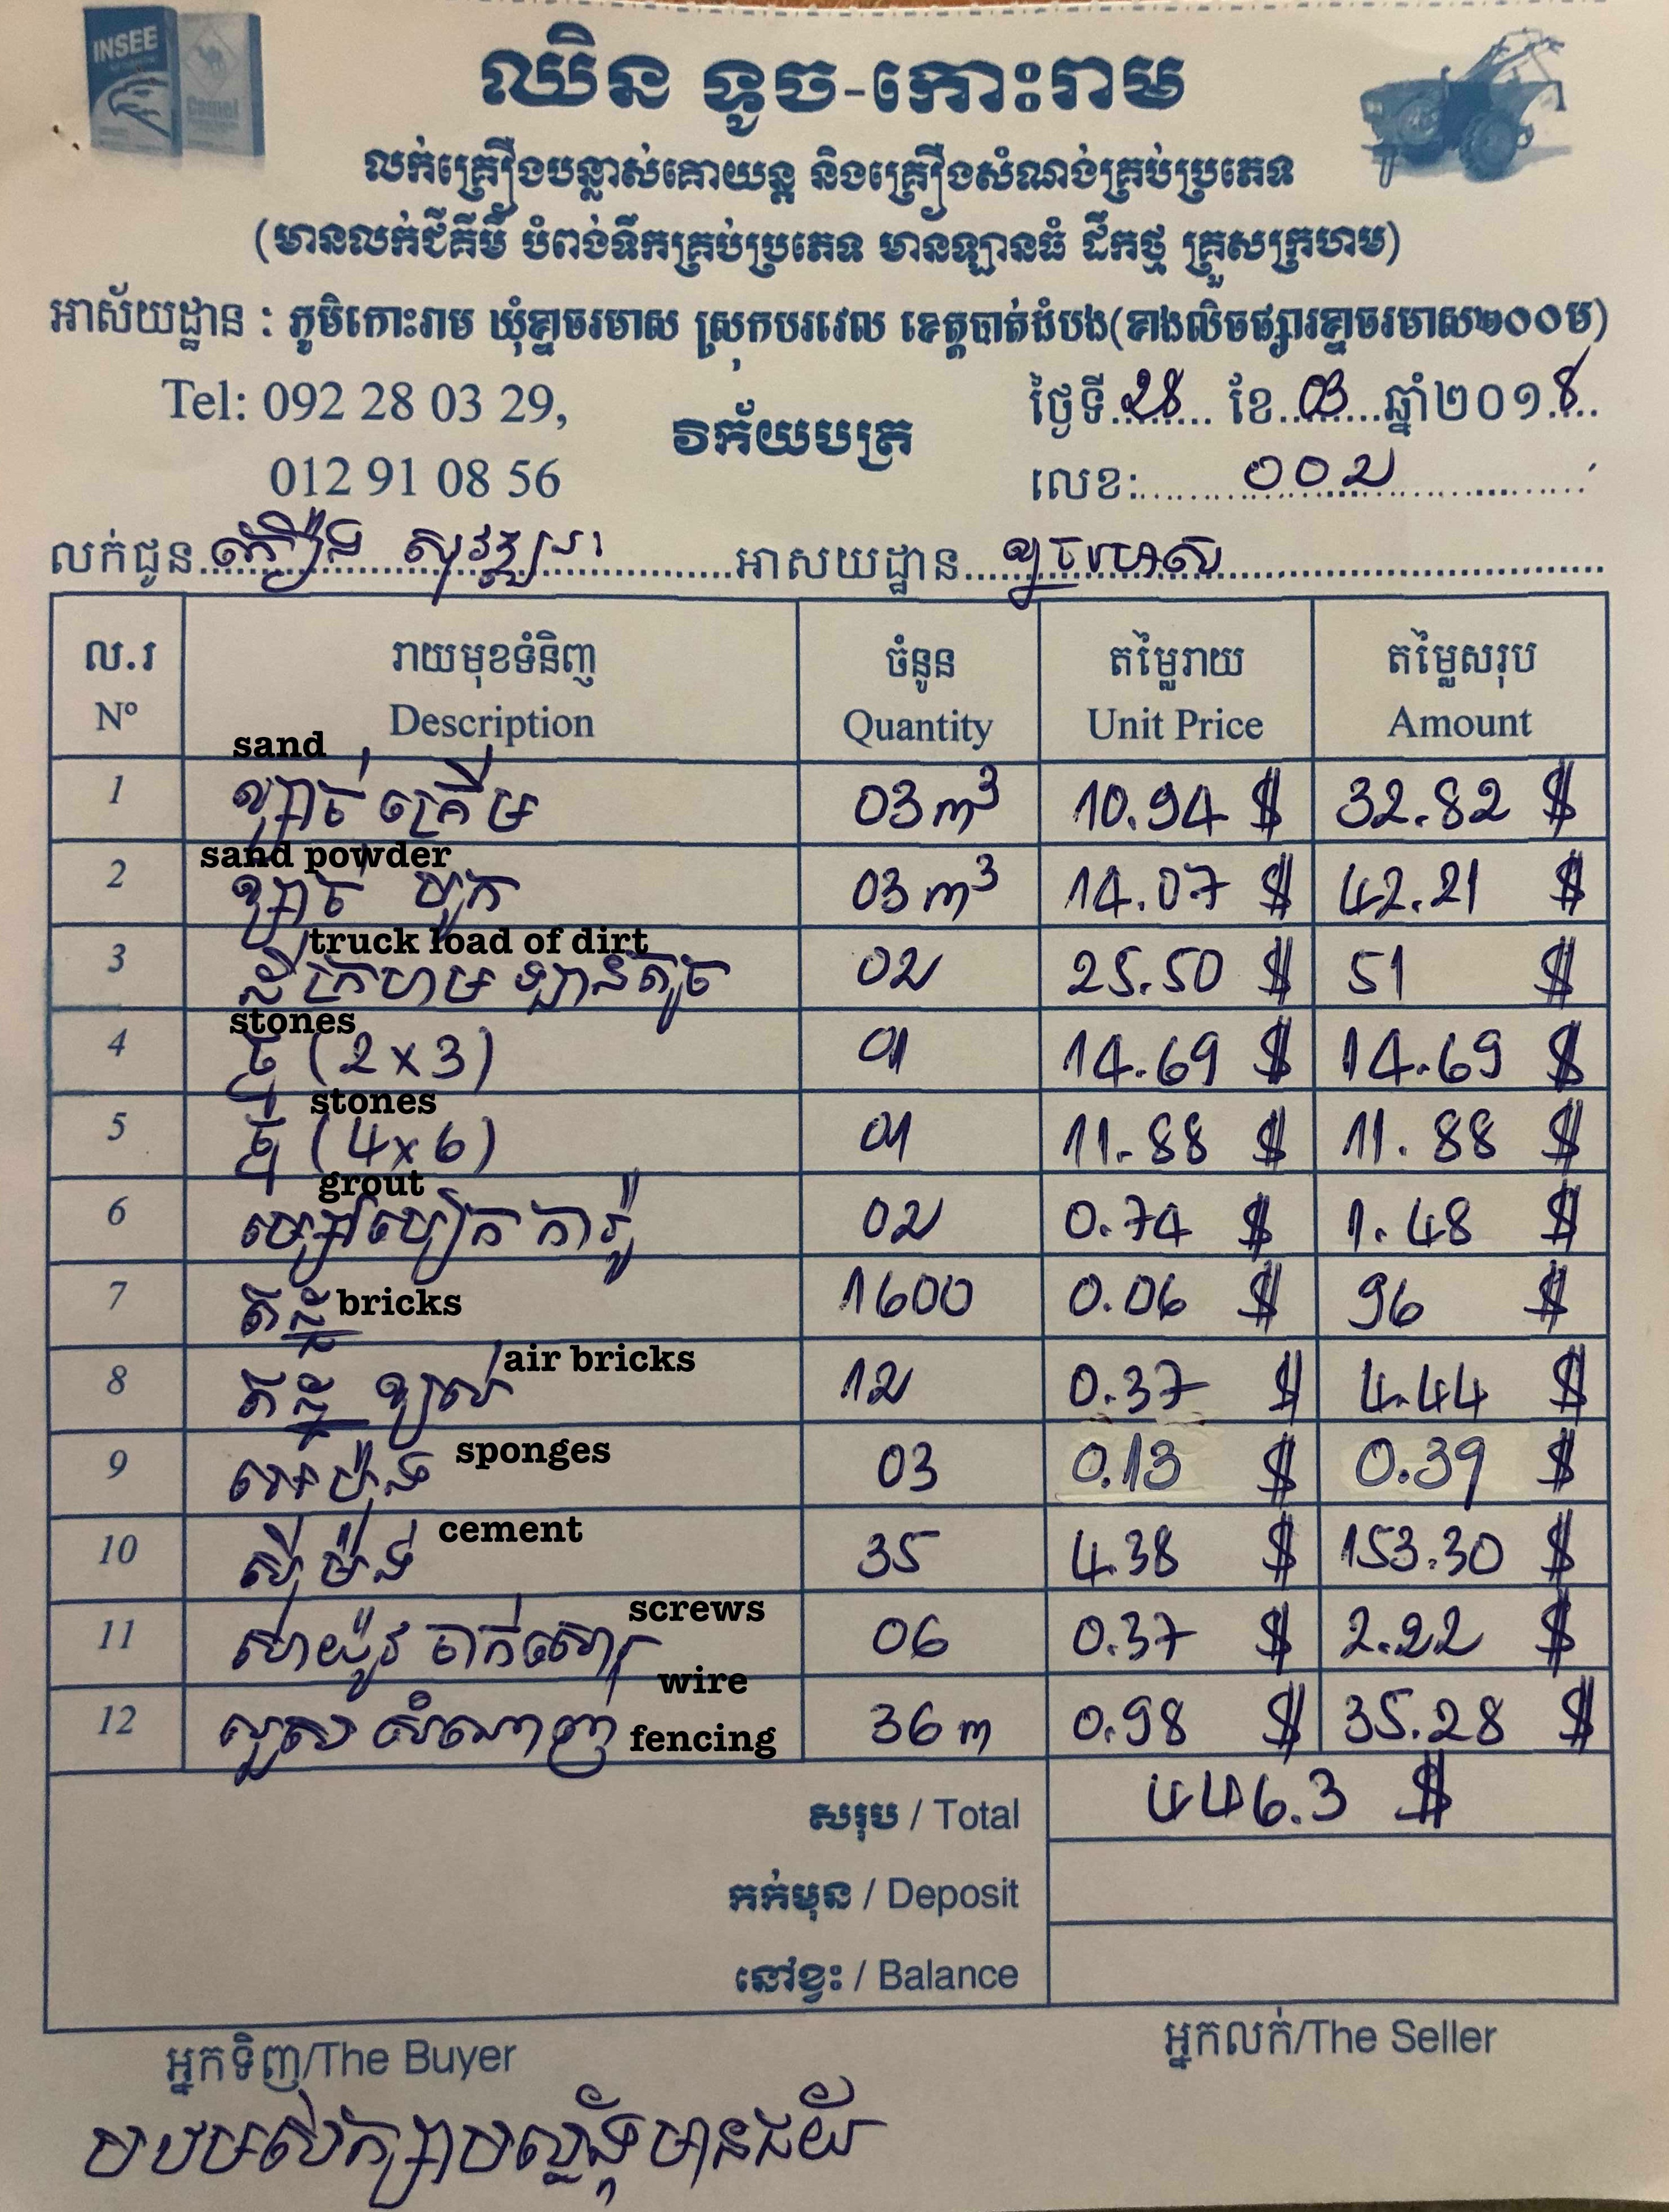 INSEE
Camel
ឈិន ទូច-កោះរាម
លក់គ្រឿងបន្លាស់គោយន្ត និងគ្រឿងសំណង់គ្រប់ប្រភេទ
(មានលក់ជីគីមី បំពង់ទឹកគ្រប់ប្រភេទ មានឡានធំ ដឹកថ្ម គ្រួសក្រហម)
អាស័យដ្ឋាន : ភូមិកោះរាម ឃុំខ្នាចរមាស ស្រុកបវេល ខេត្តបាត់ដំបង(ខាងលិចផ្សារខ្នាចរមាស២០០ម)
Tel: 092 28 03 29,
012 91 08 56
វិក័យបត្រ
ថ្ងៃទី 28 ខែ 03 ឆ្នាំ២០១8
លេខ: 002
លក់ជូន អាសយដ្ឋាន
ល.រ រាយមុខទំនិញ ចំនួន តម្លៃរាយ តម្លៃសរុប
Nº Description Quantity Unit Price Amount
sand
1 ខ្សាច់ គ្រើម 03 m³ 10.94 $ 32.82 $
sand powder
2 ខ្សាច់ បូក 03 m³ 14.07 $ 42.21 $
truck load of dirt
3 ដីក្រហម ឡានតូច 02 25.50 $ 51 $
stones
4 ថ្ម (2 x 3) 01 14.69 $ 14.69 $
stones
5 ថ្ម (4 x 6) 01 11.88 $ 11.88 $
grout
6 ម្សៅបៀកការ៉ូ 02 0.74 $ 1.48 $
7 ឥដ្ឋ bricks 1600 0.06 $ 96 $
8 ឥដ្ឋ ខ្យល់ air bricks 12 0.37 $ 4.44 $
9 អេប៉ុង sponges 03 0.13 $ 0.39 $
10 ស៊ីម៉ង់ cement 35 4.38 $ 153.30 $
11 screws 06 0.37 $ 2.22 $
12 លួសសំណាញ់ wire fencing 36 m 0.98 $ 35.28 $
សរុប / Total 446.3 $
កក់មុន / Deposit
នៅខ្វះ / Balance
អ្នកទិញ/The Buyer
អ្នកលក់/The Seller